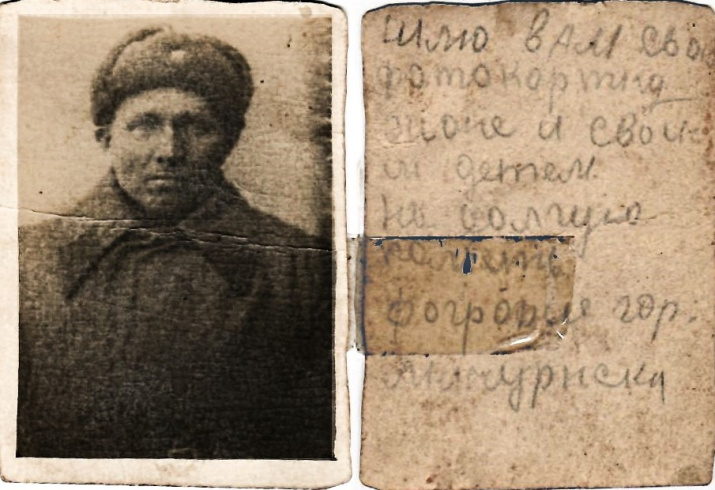 шлю вам сво
фотокарткд
жоне и свои
м детем
на долгую
память
фогрофие гор.
Мичурнска